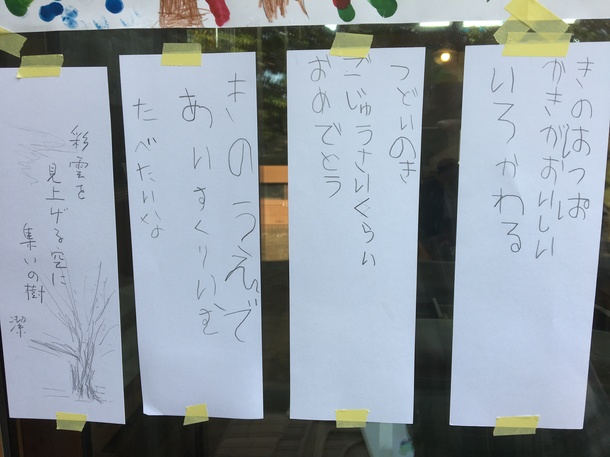 きのはっぱ
かきがおいしい
いろかわる
つどいのき
ごじゅうさいくらい
おめでとう
きのうえで
あいすくりいむ
たべたいな
彩雲を
見上げる空に
集いの樹
潔